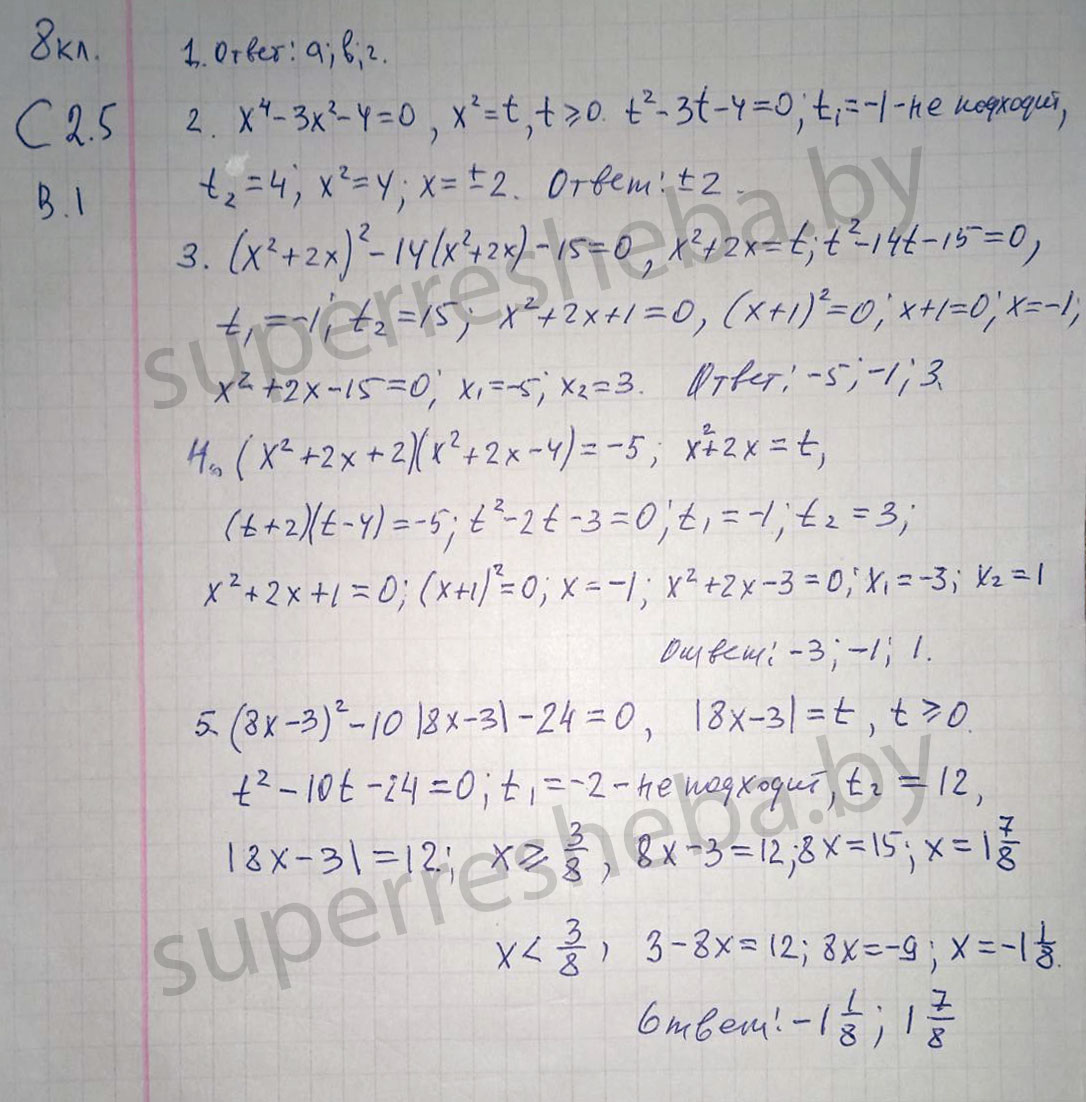 8кл.
С 2.5
В.1
1. Ответ: а; в; г.
2. x⁴-3x²-4=0, x²=t, t≥0. t²-3t-4=0; t₁=-1-не подходит,
t₂=4; x²=4; x=±2. Ответ: ±2.
3. (x²+2x)²-14(x²+2x)-15=0, x²+2x=t; t²-14t-15=0,
t₁=-1; t₂=15; x²+2x+1=0, (x+1)²=0; x+1=0; x=-1;
x²+2x-15=0; x₁=-5; x₂=3. Ответ: -5; -1; 3.
4. (x²+2x+2)(x²+2x-4)=-5; x²+2x=t,
(t+2)(t-4)=-5; t²-2t-3=0; t₁=-1; t₂=3;
x²+2x+1=0; (x+1)²=0; x=-1; x²+2x-3=0; x₁=-3; x₂=1
Ответ: -3; -1; 1.
5. (8x-3)²-10|8x-3|-24=0, |8x-3|=t, t≥0.
t²-10t-24=0; t₁=-2-не подходит, t₂=12,
|8x-3|=12; x≥3/8, 8x-3=12; 8x=15; x=1 7/8
x<3/8, 3-8x=12; 8x=-9; x=-1 1/8.
Ответ: -1 1/8; 1 7/8
superresheba.by
superresheba.by